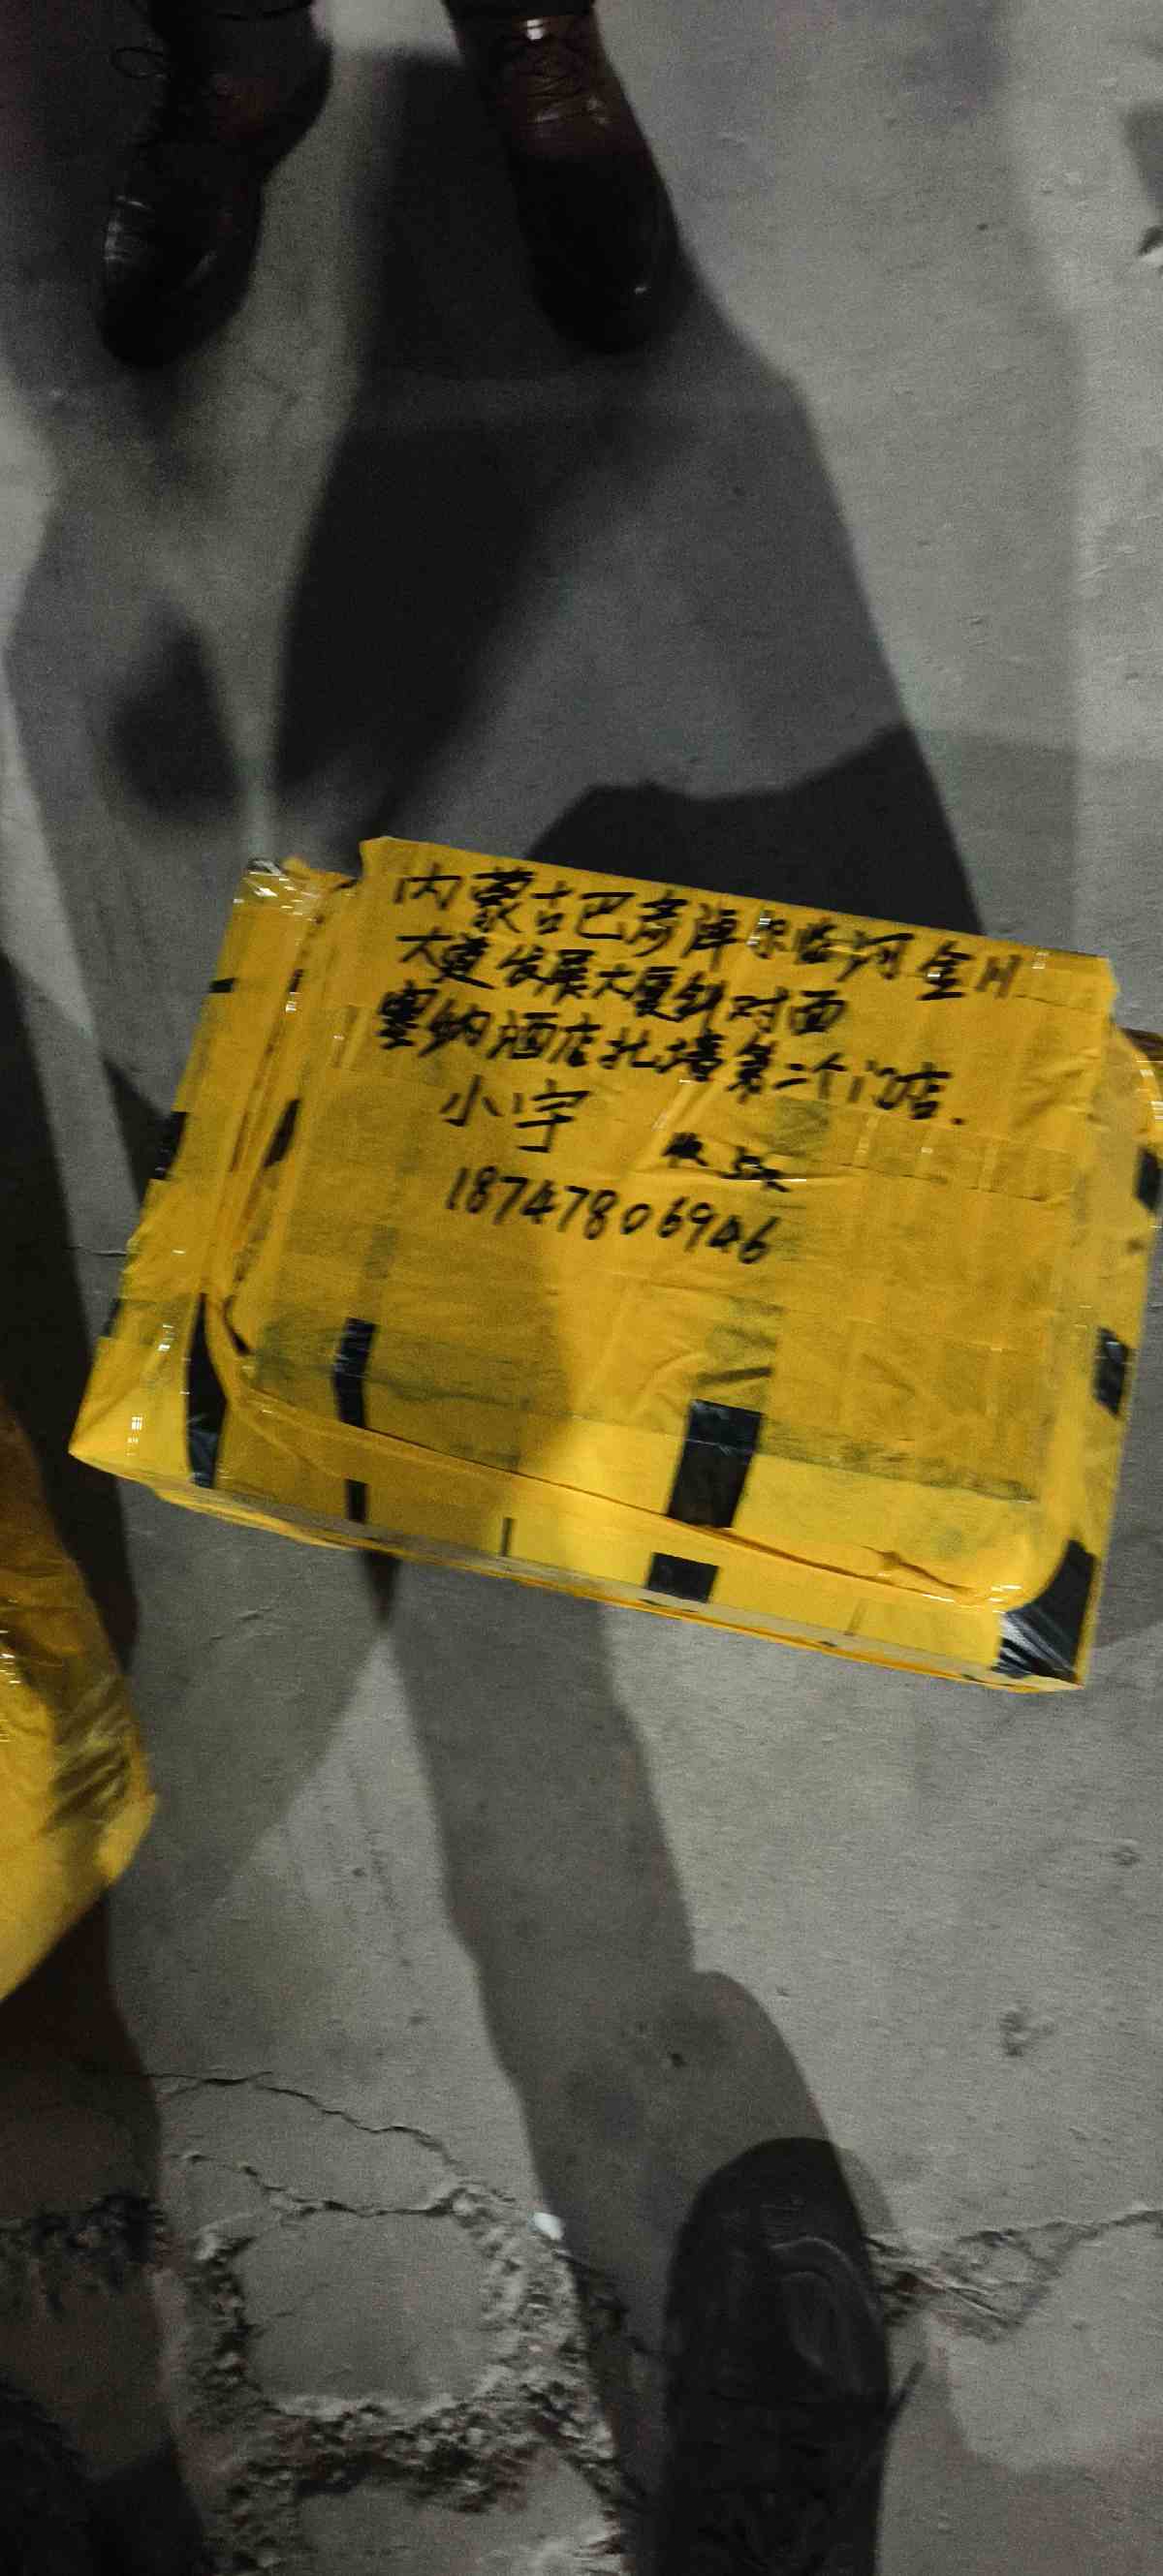 内蒙古巴彦淖尔临河金川
大道发展大厦斜对面
塞纳酒店北墙第二个门店.
小宇 收
18747806946